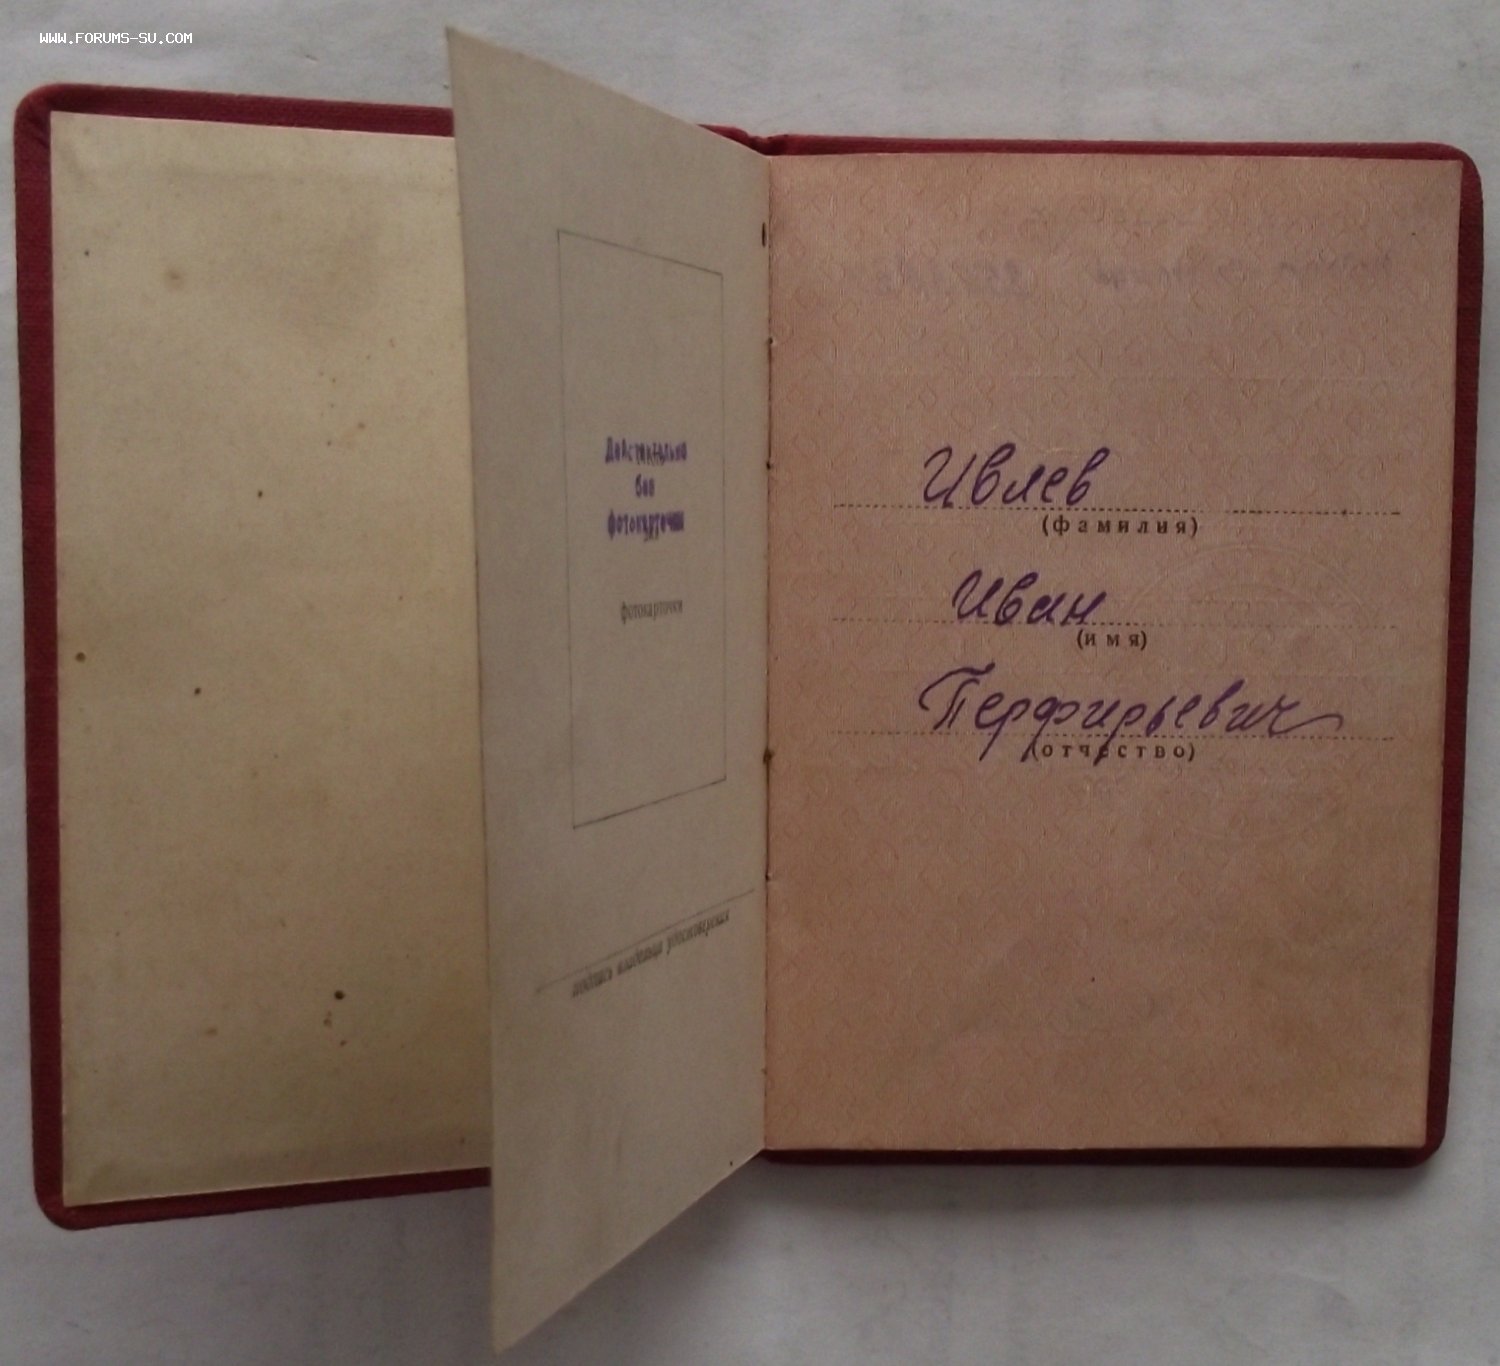 WWW.FORUMS-SU.COM
Действительно
без
фотокарточки
фотокарточки
подпись владельца удостоверения
Ивлев
(фамилия)
Иван
(имя)
Перфирьевич
(отчество)